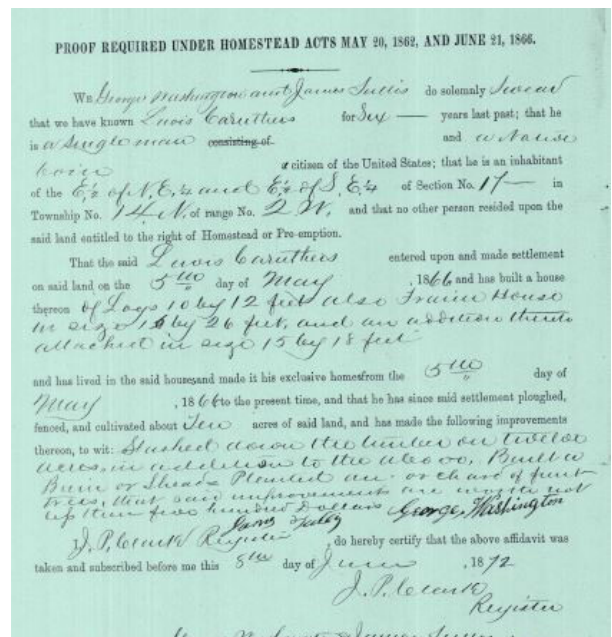 PROOF REQUIRED UNDER HOMESTEAD ACTS MAY 20, 1862, AND JUNE 21, 1866.
WE George Washington and James Tullis do solemnly Swear
that we have known Lewis Caruthers for Six — years last past; that he
is a single man consisting of and a Native
born a citizen of the United States; that he is an inhabitant
of the E½ of N.E¼ and E½ of S.E¼ of Section No. 17— in
Township No. 14 N. of range No. 2 W. and that no other person resided upon the
said land entitled to the right of Homestead or Pre-emption.
That the said Lewis Caruthers entered upon and made settlement
on said land on the 5th day of May , 1866 and has built a house
thereon of Logs 10 by 12 feet also Frame House
in size by 26 feet, and an addition thereto
attached in size 15 by 18 feet
and has lived in the said house and made it his exclusive home from the 5th day of
May , 1866 to the present time, and that he has since said settlement ploughed,
fenced, and cultivated about Ten acres of said land, and has made the following improvements
thereon, to wit: Slashed down the timber on twelve
acres in addition to the above, Built a
Barn or Shead Planted an orchard of fruit
trees, that said improvements are worth not
less than five hundred Dollars George Washington
I, J. P. Clark Register do hereby certify that the above affidavit was
taken and subscribed before me this 8th day of June , 1872
J. P. Clark
Register